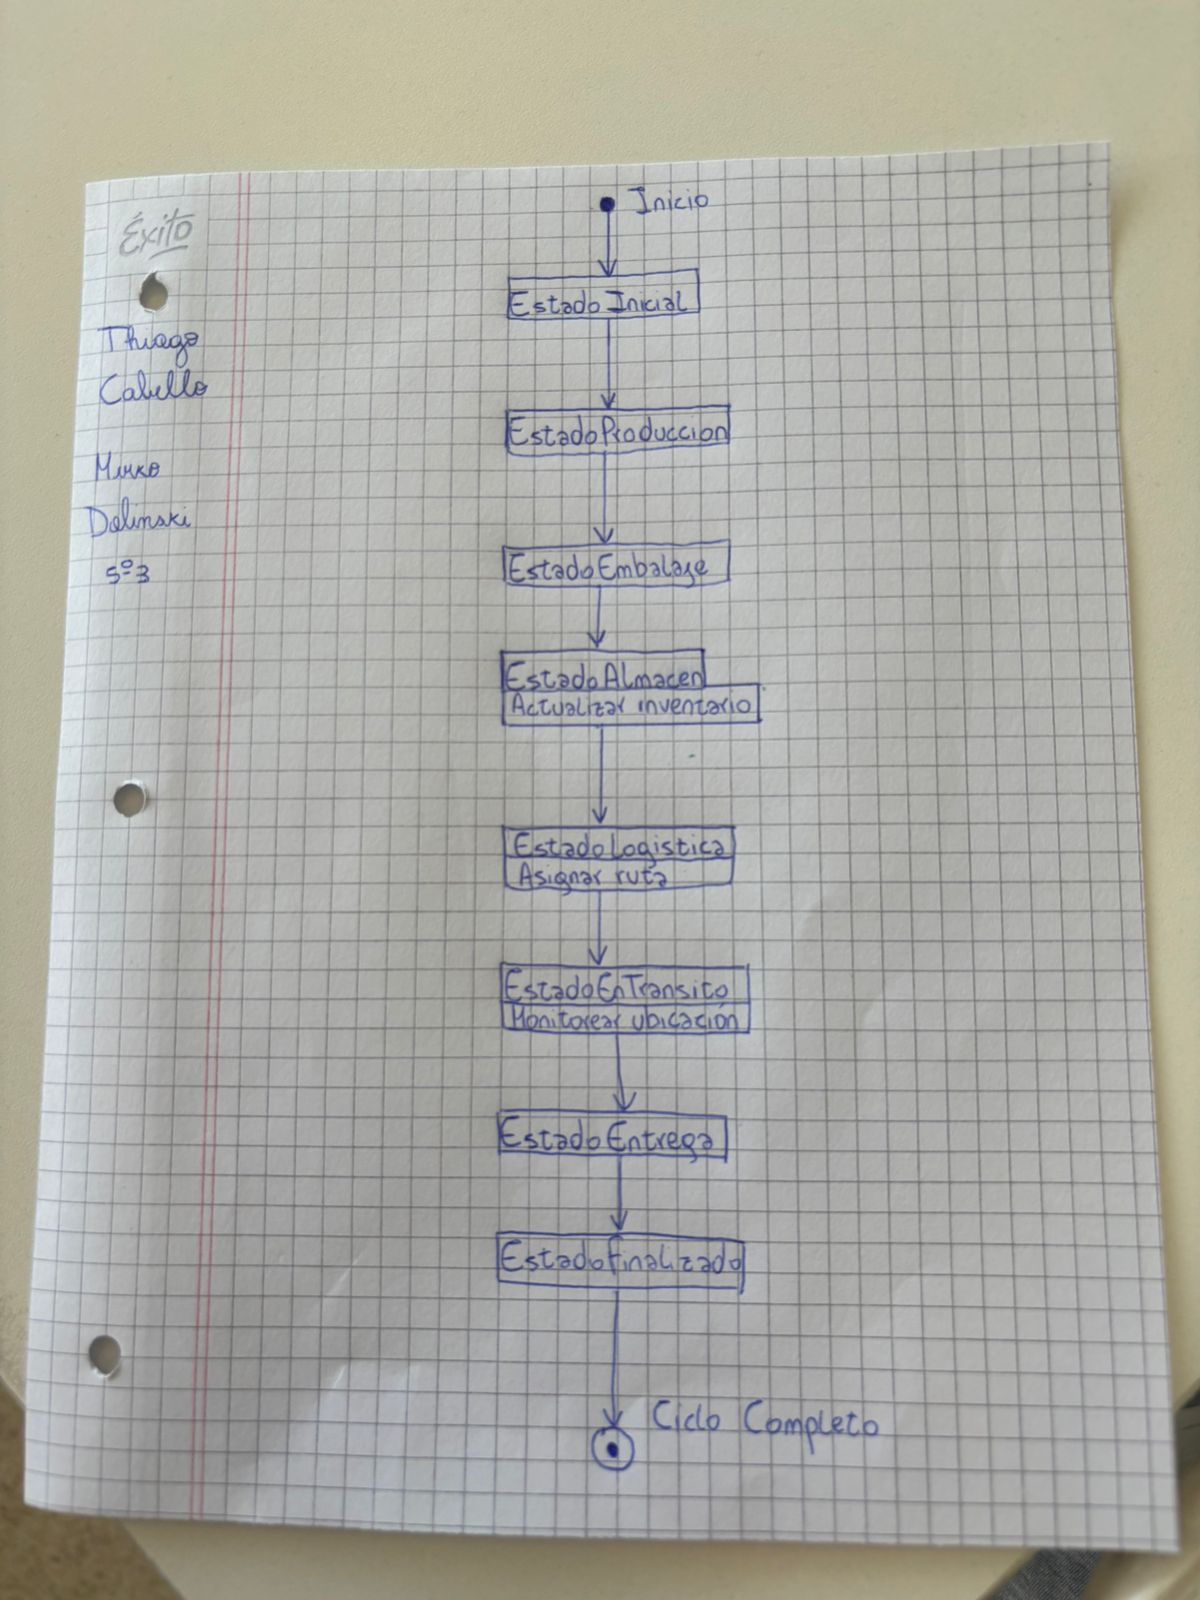 Éxito
Thiago
Cabello
Mirko
Dolinski
5º3
Inicio
Estado Inicial
EstadoProduccion
Estado Embalaje
Estado Almacen
Actualizar inventario
Estado Logistica
Asignar ruta
EstadoEnTransito
Monitorear ubicación
Estado Entrega
Estado Finalizado
Ciclo Completo